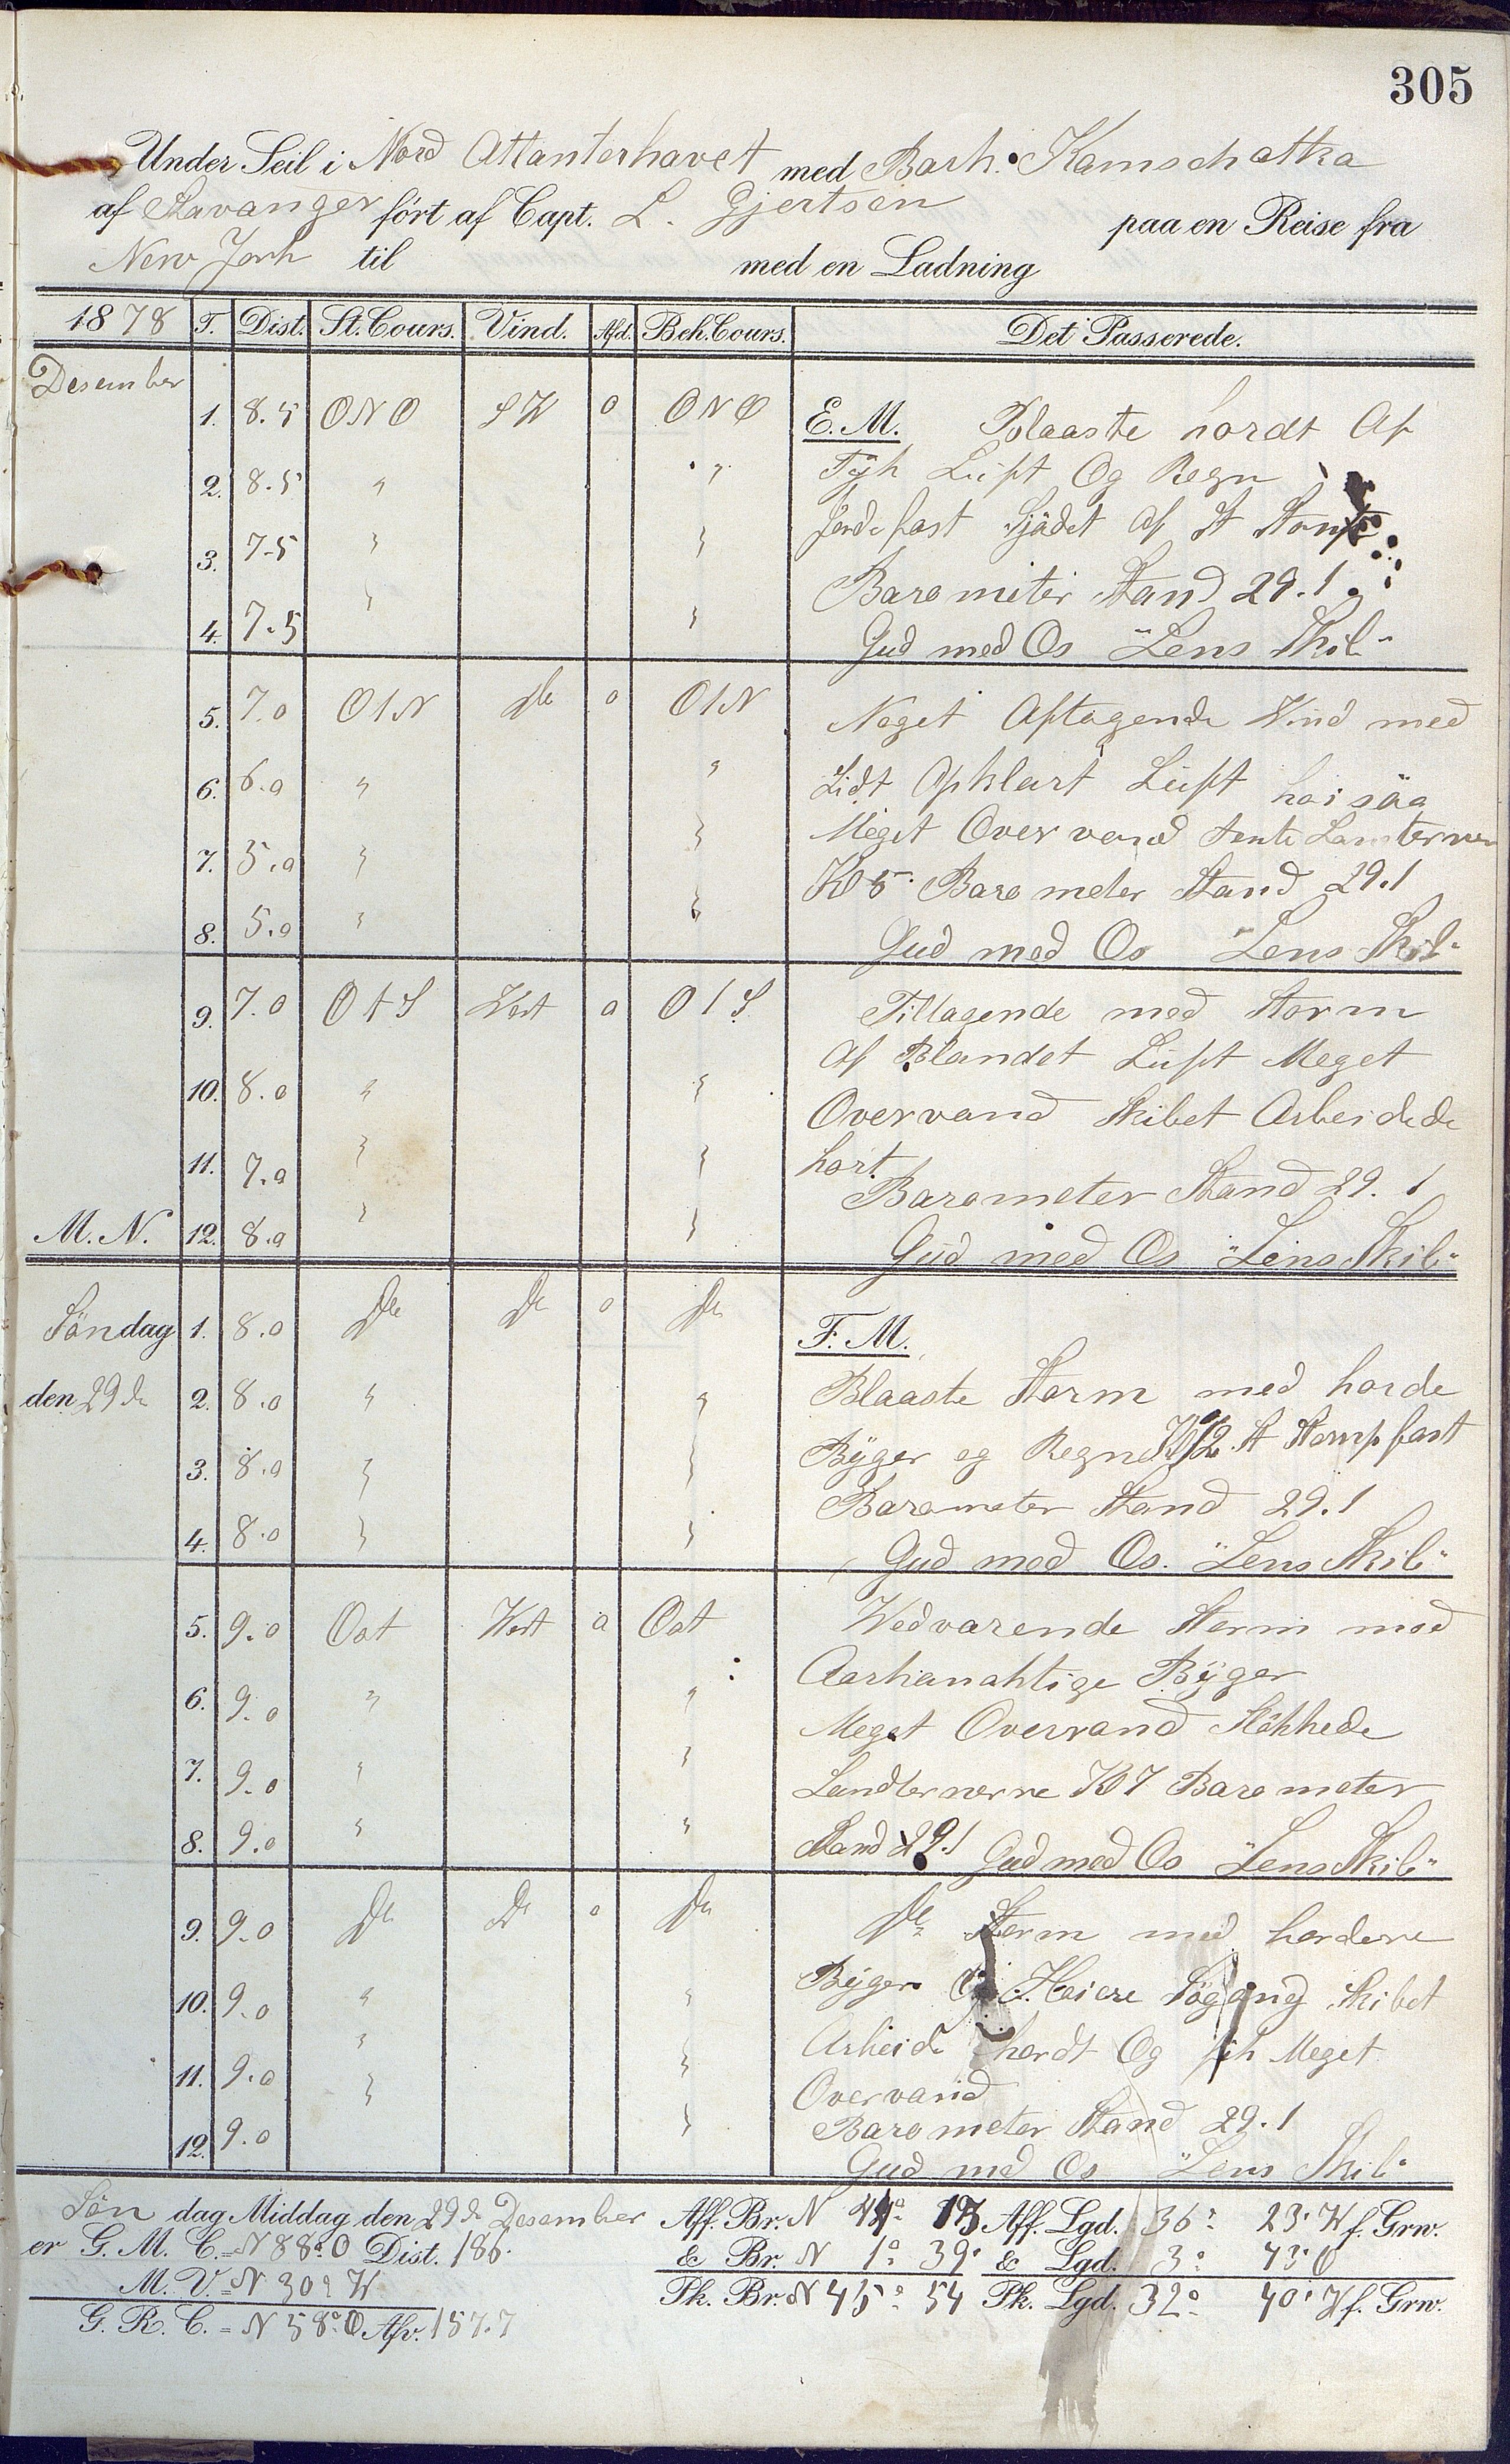 305
Under Seil i Nord Attanterhavet med Bark. Kamschatka
af Stavanger fört af Capt. L. Gjertsen paa en Reise fra
New Jork til med en Ladning
1878 T. Dist. St. Cours. Vind. Afd. Beh. Cours. Det Passerede.
Desember
1. 8.5 ONO SW 0 ONO E. M. Blaaste hordt Af
2. 8.5 " " Tÿk Luft Og Regn
3. 7.5 " " fast Sjädet Af St
Barometer Stand 29.1
4. 7.5 " " Gud med Os "Lens Skib"
5. 7.0 O t N Do 0 O t N Noget Aftagende Wind med
6. 6.0 " " Lidt Opklart Luft hoi säa
7. 5.0 " " Meget Over vand tente Lanternerne
Kl 5. Baro meter Stand 29.1
8. 5.0 " " Gud med Os "Lens Skib"
9. 7.0 O t S West 0 O t S Tiltagende med Storm
10. 8.0 " " Af Blandet Luft Meget
Overvand Skibet Arbeidede
11. 7.0 " " hort.
Barometer Stand 29. 1
M. N. 12. 8.0 " " Gud med Os "Lens Skib"
Söndag 1. 8.0 Do Do 0 Do F. M.
den 29 de 2. 8.0 " " Blaaste Storm med horde
3. 8.0 " " Bÿger og Regn Kl 2. St Stomp fast
Barometer Stand 29.1
4. 8.0 " " Gud med Os. "Lens Skib"
5. 9.0 Ost West 0 Ost Wedvarende Storm med
6. 9.0 " " Aarkanahtige Bÿger
Meget Overvand Slökkede
7. 9.0 " " Landternerne Kl 7 Baro meter
8. 9.0 " " Stand 29.1 Gud med Os "Lens Skib"
9. 9.0 Do Do 0 Do Do Storm med hordere
10. 9.0 " " Bÿger Og Hoiere Sögang Skibet
11. 9.0 " " Arbeide hordt Og fik Meget
Overvand
12. 9.0 " Baro meter Stand 29.1
Gud med Os "Lens Skib"
Sön dag Middag den 29 de Desember Aff. Br. N 44° 15 Aff. Lgd. 36° 23' W f. Grw.
er G. M. C. = N 88° O Dist. 186. & Br. N 1° 39' & Lgd. 3° 43' O
M. V. = N 30° W
Pk. Br. N 45° 54 Pk. Lgd. 32° 40' W f. Grw.
G. R. C. = N 58° O Afv. 157.7